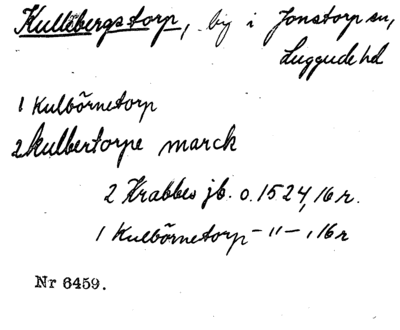 Kullebergstorp, by i Jonstorp sn,
Luggude hd
1 Kulbörnetorp
2 kulbertorpe marck
2 Krabbes jb. o. 1524, 16 r.
1 Kulbörnetorp -"- , 16 r
Nr 6459.